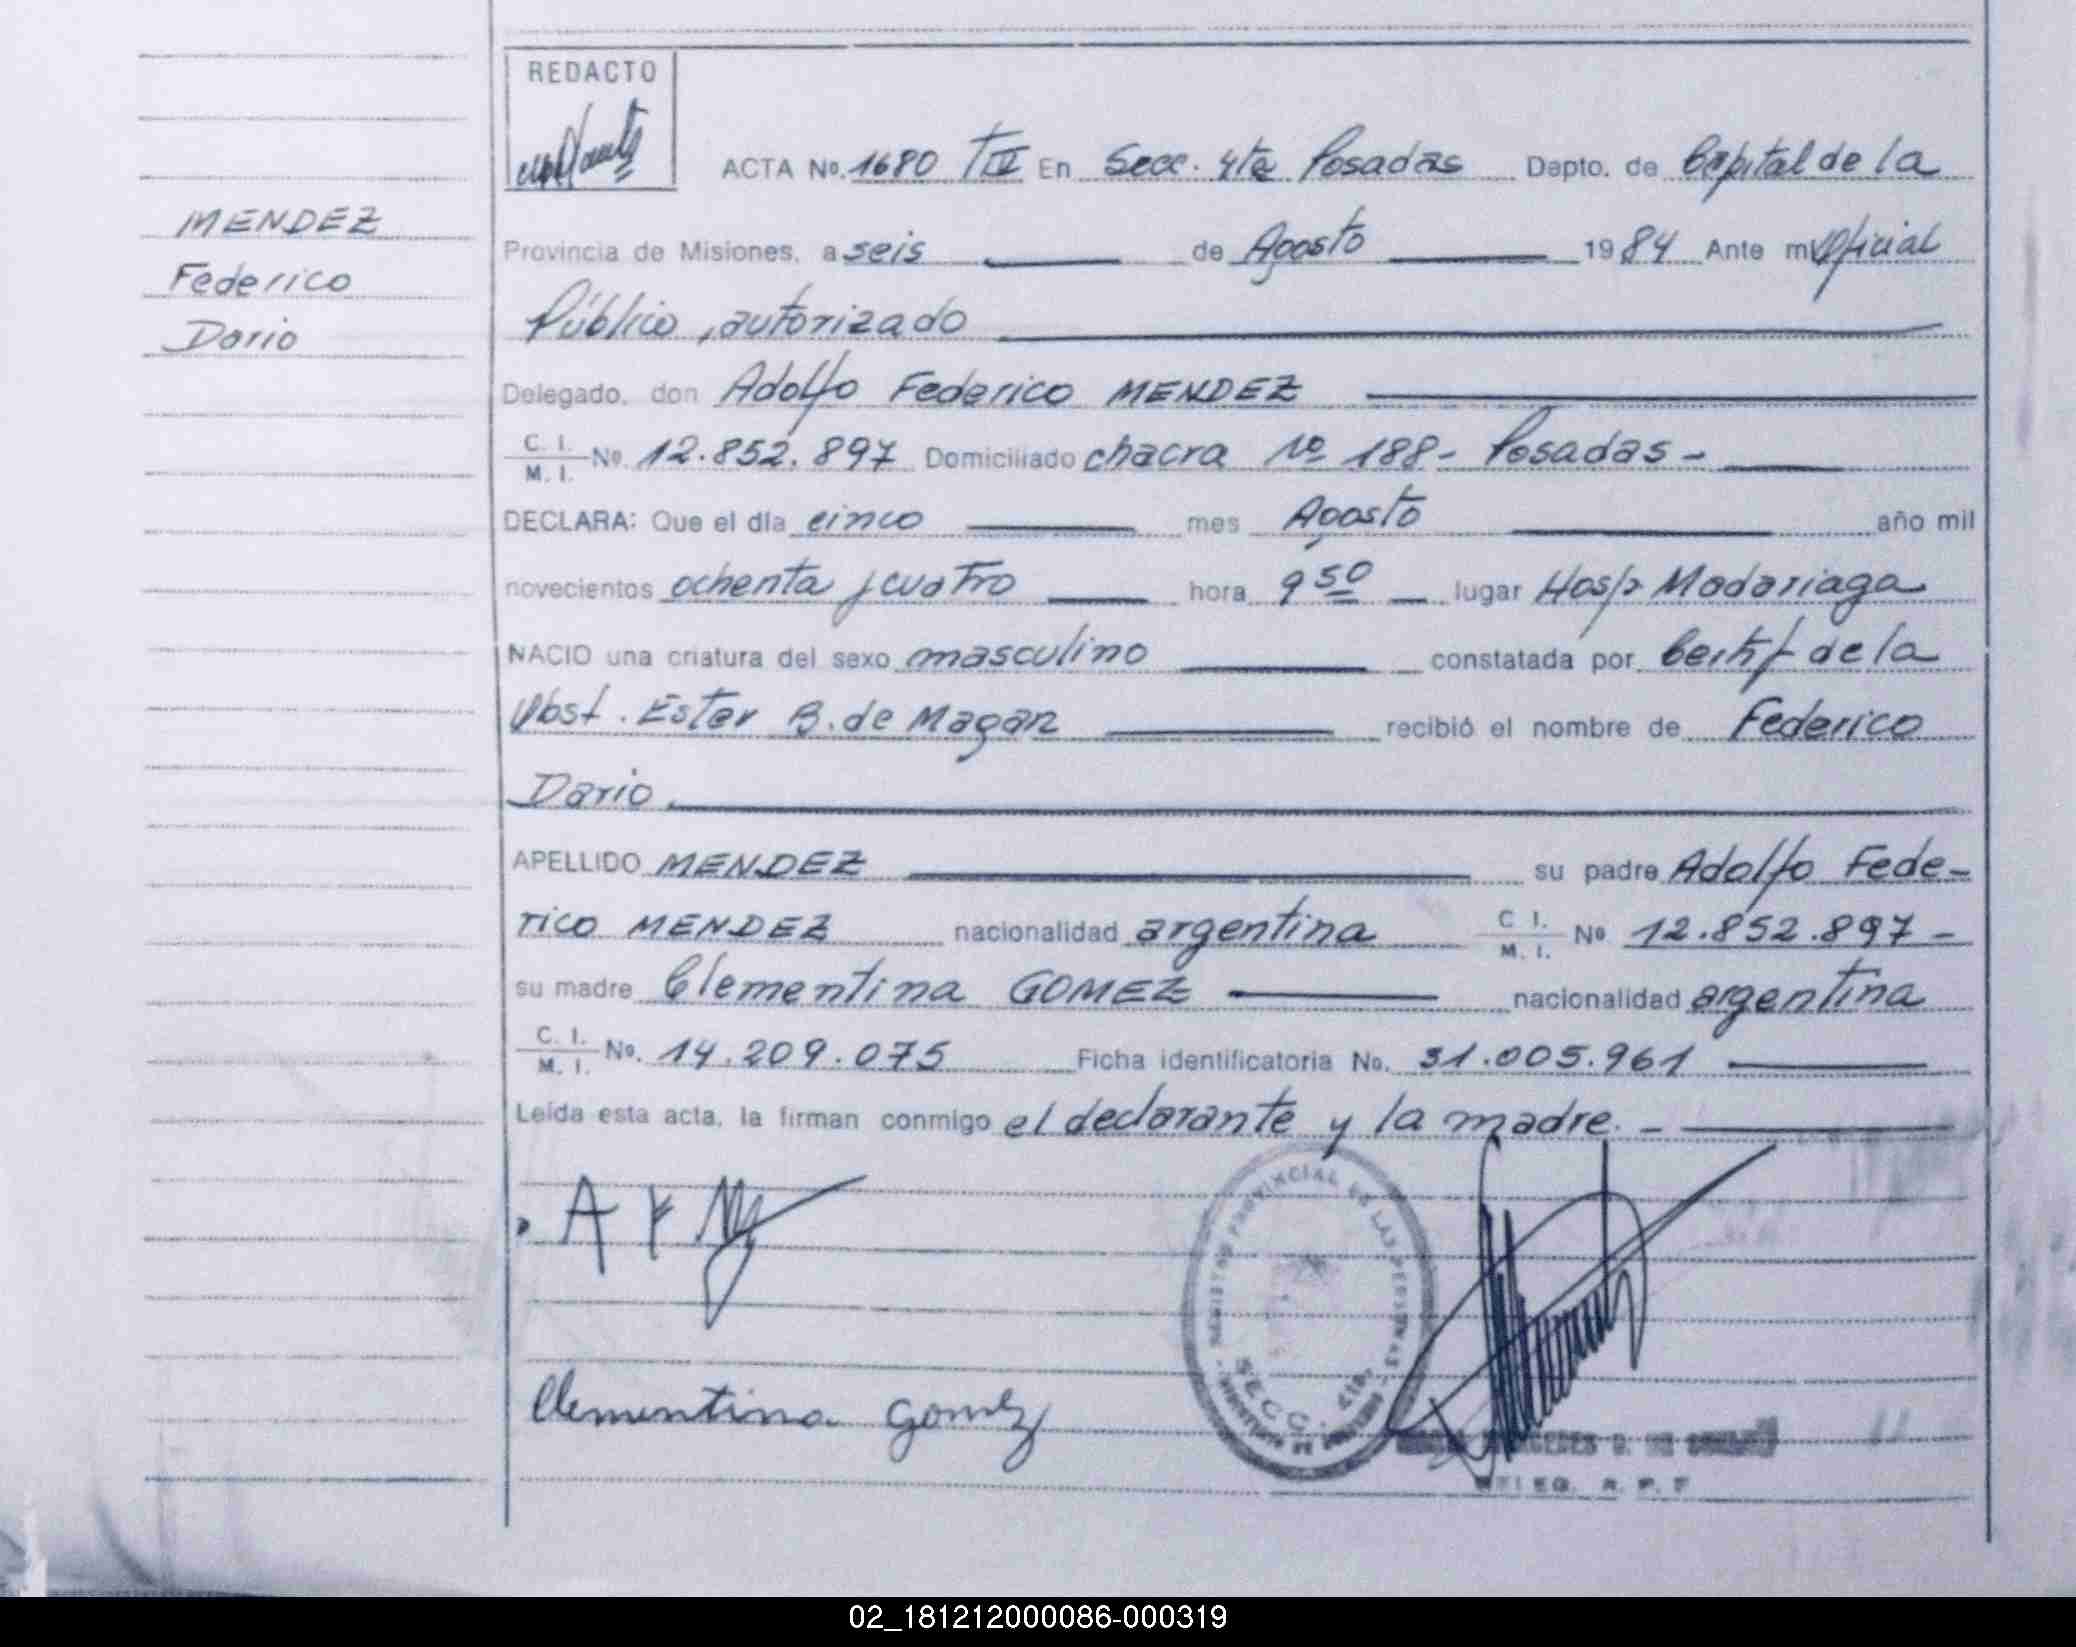 REDACTO
ACTA No. 1680 TIII En Secc. 4ta Posadas Depto. de Capital de la
MENDEZ
Federico
Dario
Provincia de Misiones, a seis de Agosto 1984 Ante mi Oficial
Público, autorizado
Delegado, don Adolfo Federico MENDEZ
C. I. M. I. No. 12.852.897 Domiciliado chacra Nº 188 - Posadas -
DECLARA: Que el día cinco mes Agosto año mil
novecientos ochenta y cuatro hora 9 50 lugar Hosp Madariaga
NACIO una criatura del sexo masculino constatada por Certif de la
Obst. Ester B. de Magan recibió el nombre de Federico
Dario
APELLIDO MENDEZ su padre Adolfo Fede-
rico MENDEZ nacionalidad argentina C I. M. I. Nº 12.852.897 -
su madre Clementina GOMEZ nacionalidad argentina
C. I. M. I. No. 14.209.075 Ficha identificatoria No. 31.005.961
Leída esta acta, la firman conmigo el declarante y la madre. -
A F M
REGISTRO PROVINCIAL DE LAS PERSONAS
SECC. 4ta.
Clementina Gomez
MERCEDES
DELEG. R. P. P
02_181212000086-000319